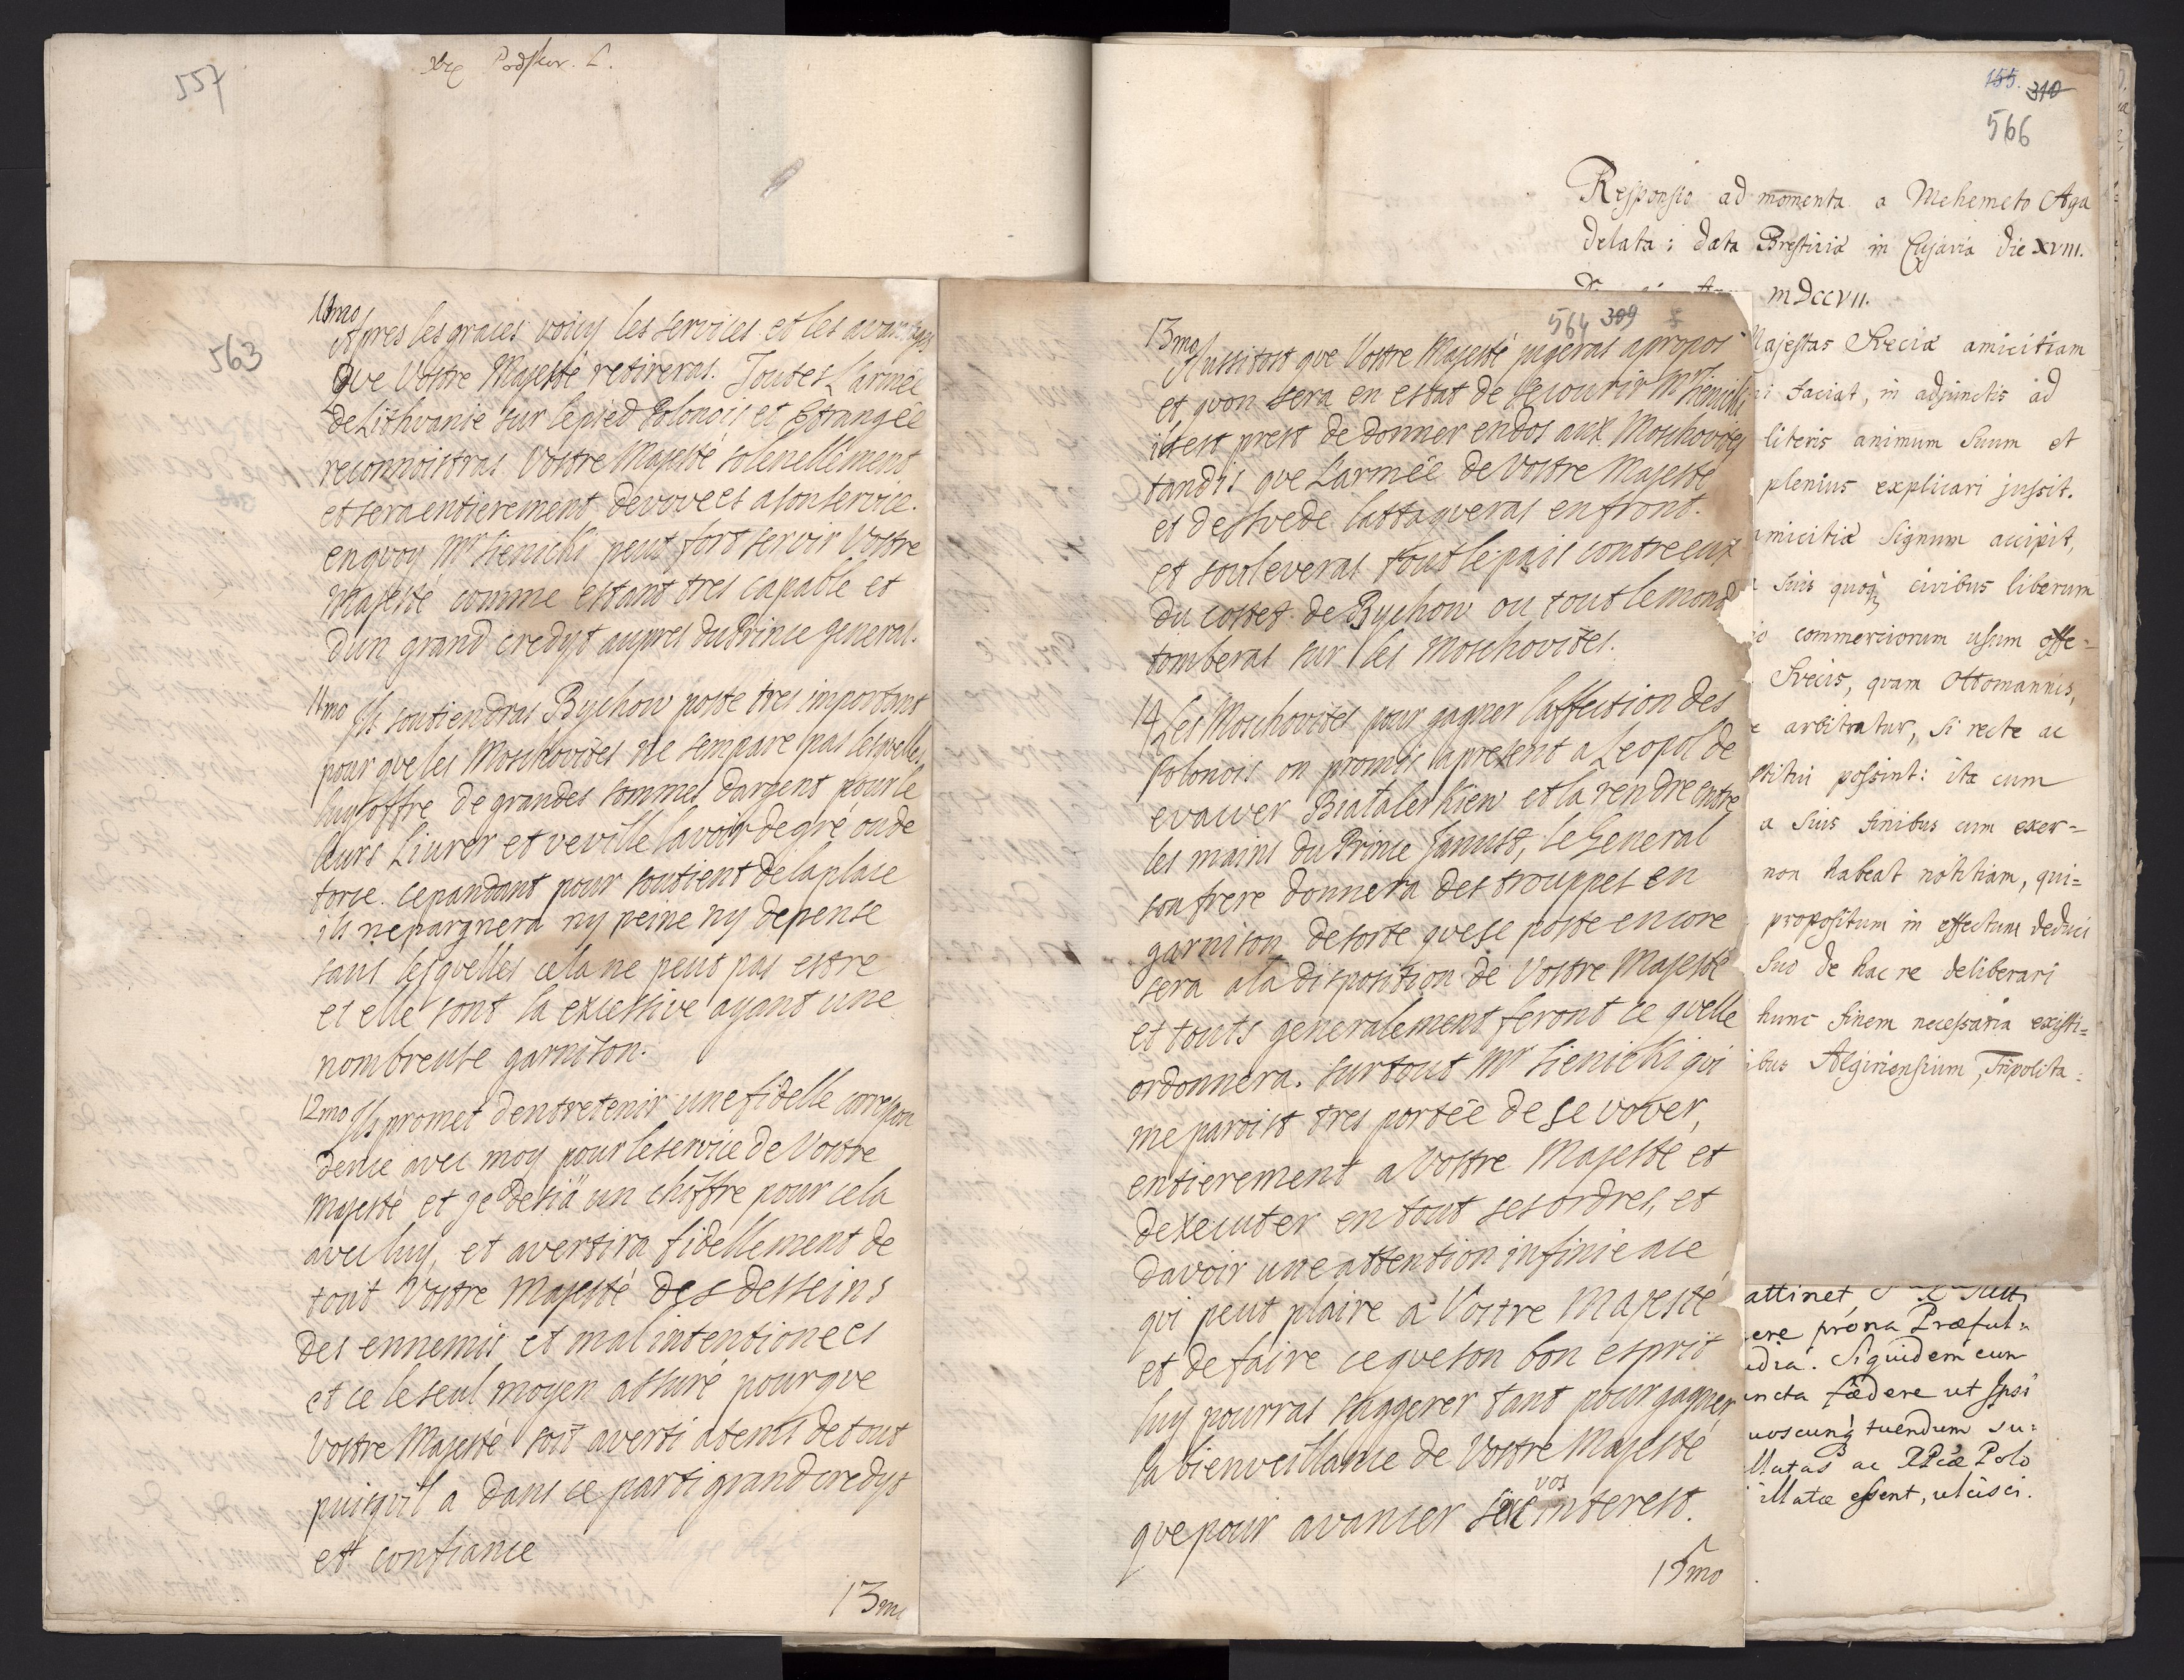 557
Podskar. L.
563
10mo
Apres les graces voicy les services et les avantages
que Vostre Majesté retireras. Toutes L'armée
de Lithvanie sur le pied Polonois et Etrangée
reconnoistras Vostre Majesté solenellement
et sera entierement devovees a son service.
en quoy Mr Sienicki peut fort servir Vostre
Majesté comme estant tres capable et
dun grand credyt aupres du Prince general.
11mo Ils soutiendras Bychow poste tres important
pour que les Moschovites ne sempare pas lesquelles
luy soffre de grandes sommes dargent pour le
leurs Liurer et veville lavoir de gre ou de
force. cepandant pour soutient de la place
ils nepargnera ny peine ny depense
sans lesquelles cela ne peut pas estre
et elle sont la excessive ayant une
nombreuse garnison.
12mo Ils promet dentretenir une fidelle correspon
dence avec moy pour le service de Vostre
Majesté et je desià un chiffre pour cela
avec luy, et avertira fidellement de
tout Vostre Majesté des desseins
des ennemis et mal intentionees
et ce le seul moyen assuré pour que
Vostre Majesté soit averti atems de tout
puisquil a dans ce parti grand credyt
et confiance
13mo
564 309
13mo
Aussitost que Vostre Majesté jugeras apropos
et quon sera en estat de secourir Mr Sienicki
ilsest prest de donner endos aux Moschovites
tandis que L'armée de Vostre Majesté
et de Svede lattaqueras en front.
et souleveras tout le pais contre eux
du costes de Bychow ou tout le monde
tomberas sur les Moschovites.
14 Les Moschovites pour gagner laffection des
Polonois on promis apresent a Leopol de
evacuer Biatacerkiew et la rendre entre
les mains du Prince Janust, le General
son frere donnera des trouppes en
garnison desorte que se poste encore
sera a la disposition de Vostre Majesté
et touts generalement feront ce qvelle
ordonnera. surtout Mr Sienicki qui
me paroist tres portée de se vover,
entierement a Vostre Majesté et
dexecuter en tout ses ordres, et
davoir une attention infinie a ce
qui peut plaire a Vostre Majesté
et de faire ce que son bon esprit
luy pourras suggerer tant pour gagner
la bienveillance de Vostre Majesté
vos
que pour avancer interest.
15mo
155. 310
566
Responsio ad momenta a Mehemeto Aga
delata: data Bresticiæ in Cujavia die XVIII.
MDCCVII.
Majestas Sveciæ amicitiam
faciat, in adjunctis ad
literis animum suum et
plenius explicari jussit.
amicitiæ signum accipit,
suis quoq; civibus liberum
commerciorum usum offe-
Svecis, qvam Ottomannis,
arbitratur, si recte ac
possint: ita cum
a suis finibus cum exer-
non habeat notitiam, qui-
propositum in effectum deduci
suo de hac re deliberari
hunc finem necessaria existi-
Algiriensium, Tripolita-
attinet
prona Præful-
Siquidem cum
fœdere ut Ipsi
tuendum su-
ac RPcæ Polo
illatæ essent, ulcisci.